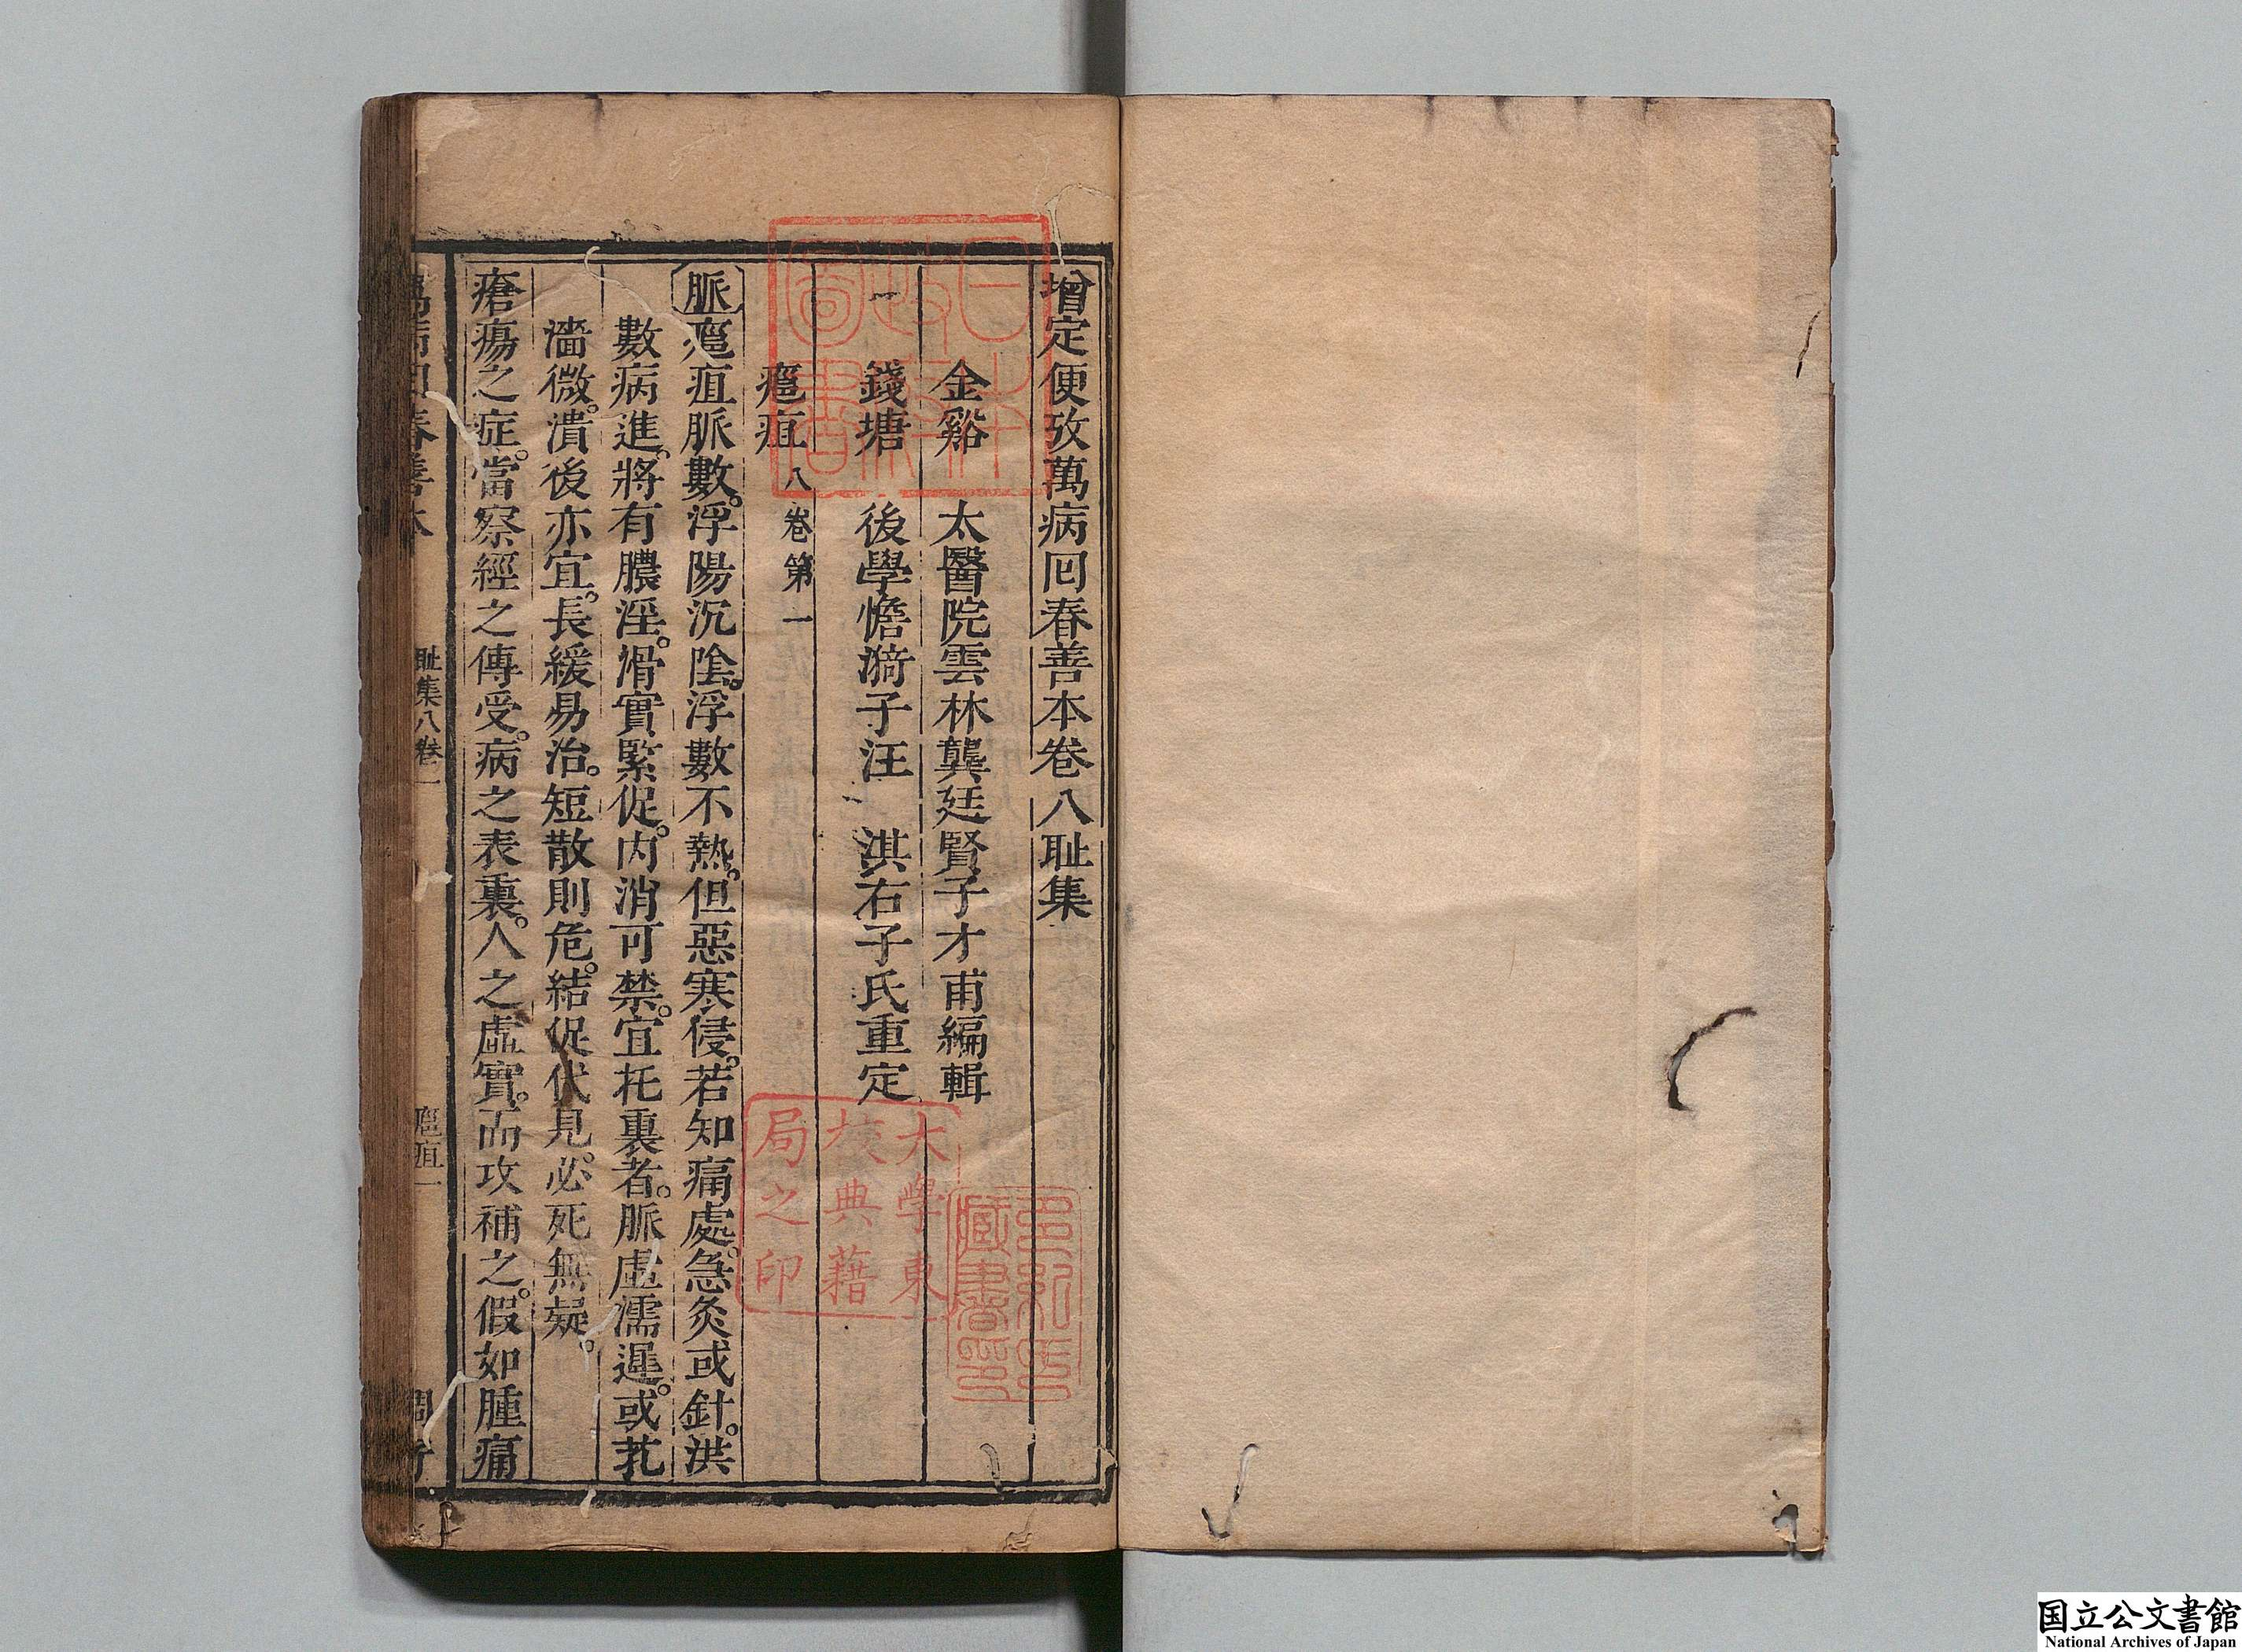 增定便攷萬病回春善本卷八耻集
金谿　太醫院雲林龔廷賢子才甫編輯
錢塘　後學憺漪子汪　淇右子氏重定
癰疽　八卷第一
脈癰疽脈數。浮陽沉陰。浮數不熱。但惡寒侵。若知痛處。急灸或針。洪
數病進。將有膿淫。滑實緊促。內消可禁。宜托裏者。脈虛濡遲。或芤
濇微。潰後亦宜。長緩易治。短散則危。結促代見。必死無疑。
瘡瘍之症。當察經之傳受。病之表裏。人之虛實。而攻補之。假如腫痛
耻集八卷一
癰疽一
日本政府圖書
大學東
校典籍
局之印
多紀氏
藏書印
国立公文書館
National Archives of Japan